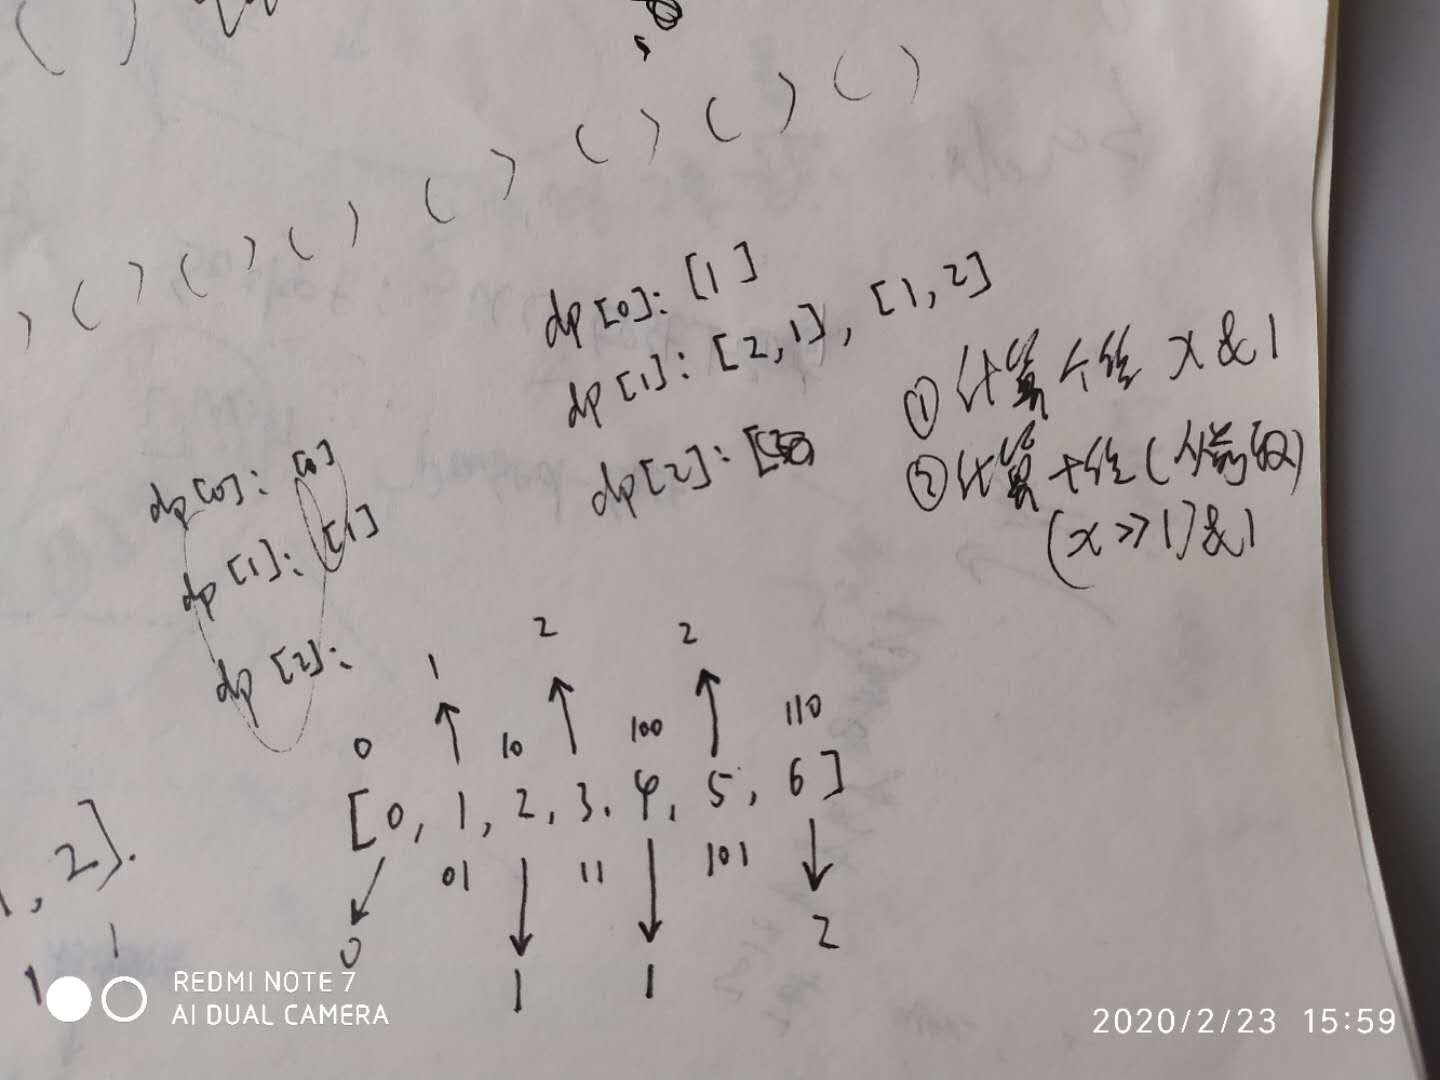 ( )
( ) ( ) ( )
) ( ) ( ) ( ) ( )
dp[0]: [1]
dp[1]: [2,1], [1,2]
dp[2]: [
① 计算个位 x&1
② 计算十位
(x>>1)&1
dp[0]: [0]
dp[1]: [1]
dp[2]:
1 2 2
0 10 100 110
[0, 1, 2, 3, 4, 5, 6]
01 11 101
0 1 1 2
, 2].
1
1
REDMI NOTE 7
AI DUAL CAMERA
2020/2/23 15:59